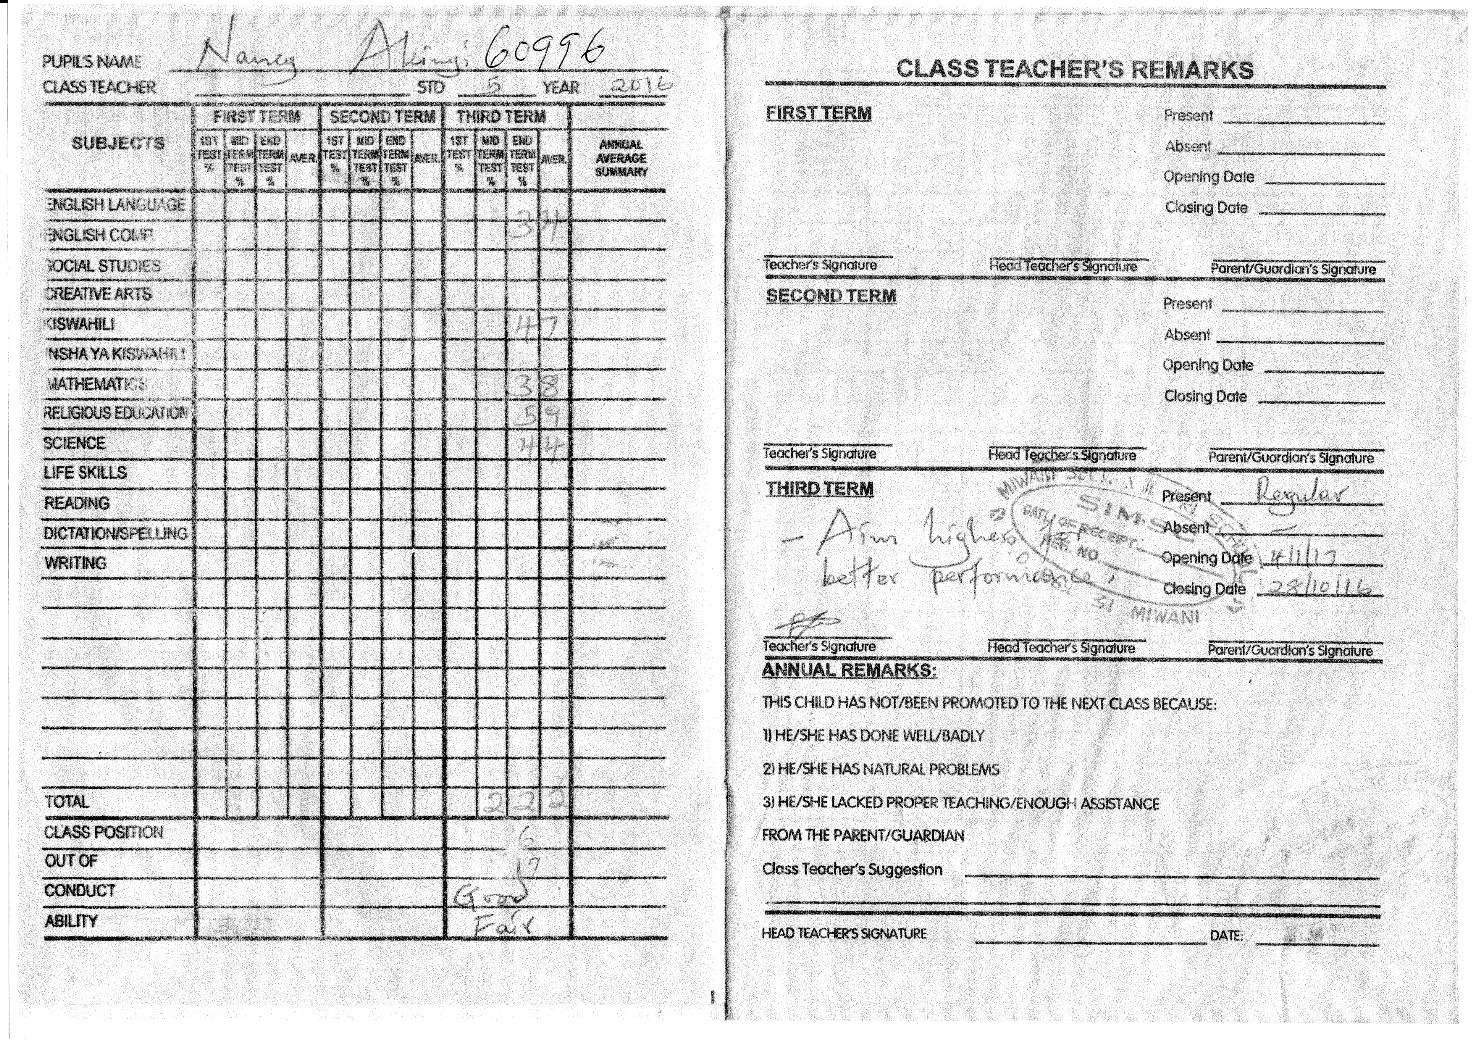 PUPIL'S NAME Nancy Akinyi 60996
CLASS TEACHER STD 5 YEAR 2016
SUBJECTS FIRST TERM SECOND TERM THIRD TERM ANNUAL AVERAGE SUMMARY
1ST TEST % MID TERM TEST % END TERM TEST % AVER. 1ST TEST % MID TERM TEST % END TERM TEST % AVER. 1ST TEST % MID TERM TEST % END TERM TEST % AVER.
ENGLISH LANGUAGE
34
ENGLISH COMP.
SOCIAL STUDIES
CREATIVE ARTS
KISWAHILI 47
INSHA YA KISWAHILI
MATHEMATICS 38
RELIGIOUS EDUCATION 59
SCIENCE 44
LIFE SKILLS
READING
DICTATION/SPELLING
WRITING
TOTAL 222
CLASS POSITION 6
OUT OF
CONDUCT Good
ABILITY Fair
CLASS TEACHER'S REMARKS
FIRST TERM Present
Absent
Opening Date
Closing Date
Teacher's Signature Head Teacher's Signature Parent/Guardian's Signature
SECOND TERM Present
Absent
Opening Date
Closing Date
Teacher's Signature Head Teacher's Signature Parent/Guardian's Signature
THIRD TERM Present Regular
- Aim higher for Absent -
better performance. Opening Date 4/1/17
Closing Date 28/10/16
MIWANI
SIMS
DATE OF RECEPT
REG. NO.
MIWANI
Teacher's Signature Head Teacher's Signature Parent/Guardian's Signature
ANNUAL REMARKS:
THIS CHILD HAS NOT/BEEN PROMOTED TO THE NEXT CLASS BECAUSE:
1) HE/SHE HAS DONE WELL/BADLY
2) HE/SHE HAS NATURAL PROBLEMS
3) HE/SHE LACKED PROPER TEACHING/ENOUGH ASSISTANCE
FROM THE PARENT/GUARDIAN
Class Teacher's Suggestion
HEAD TEACHER'S SIGNATURE DATE: